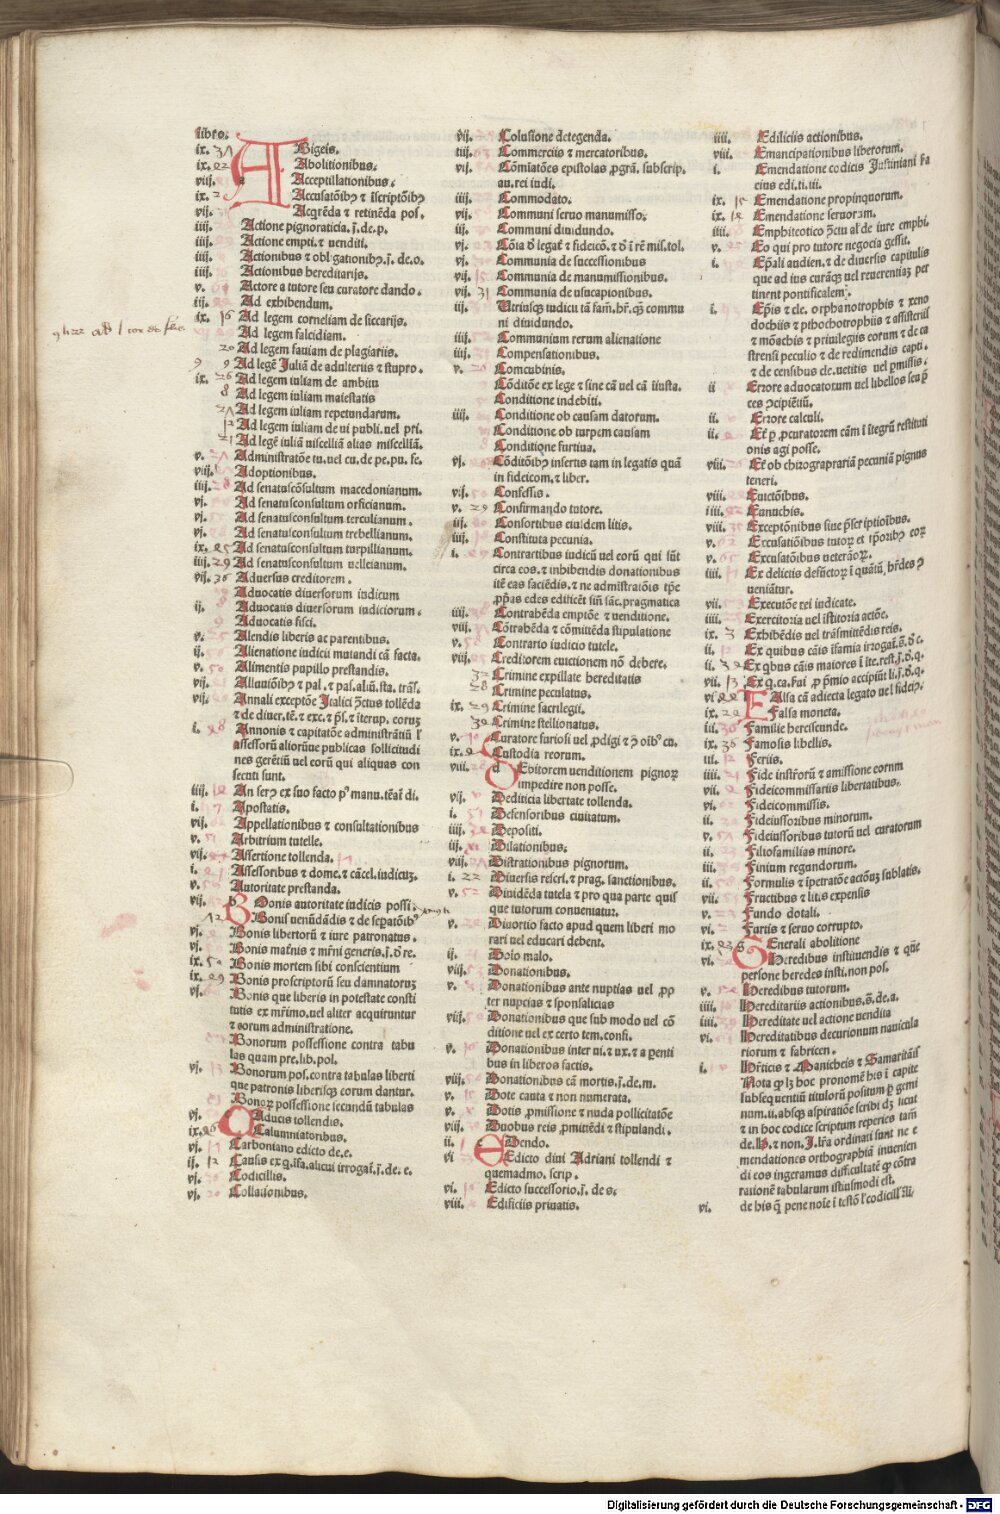 libro.
ix. 31 Abigeis.
ix. 22 Abolitionibus.
viij. Acceptillationibus.
ix. 2 Accusatōibꝫ ⁊ īscriptōibꝫ
vij. Acq̄rēda ⁊ retinēda pos.
iiij. Actione pignoraticia.ſ̄.de.p.
iiij. Actione empti.⁊ uenditi.
iiij. Actionibus ⁊ obligationibꝫ.ſ̄.de.o.
iiij. Actionibus hereditarijs.
v. Actore a tutore seu curatore dando.
iij. Ad exhibendum.
ix. 16 Ad legem corneliam de siccarijs.
Ad legem falcidiam.
20 Ad legem fauiam de plagiariis.
9 9 Ad legē Juliā de adulteriis ⁊ stupro.
ix. 26 Ad legem iuliam de ambitu
8 Ad legem iuliam maiestatis
27 Ad legem iuliam repetundarum.
12 Ad legem iuliam de ui publi.uel pri.
21 Ad legē iuliā miscelliā alias miscelliā.
v. Administratōe tu.uel cu.de pe.pu.fe.
viij. Adoptionibus.
iiij. 28 Ad senatuscōsultum macedonianum.
vj. Ad senatusconsultum orficianum.
vj. Ad senatusconsultum terculianum.
vj. Ad senatusconsultum trebellianum.
ix. 25 Ad senatusconsultum turpillianum.
iiij. 29 Ad senatusconsultum uelleianum.
vij. 36 Aduersus creditorem.
Aduocatis diuersorum iudicum
ij. Aduocatis diuersorum iudiciorum.
9 Aduocatis fisci.
v. 25 Alendis liberis ac parentibus.
ij. Alienatione iudicii mutandi cā facta.
v. 50 Alimentis pupillo prestandis.
vij. Alluuiōibꝫ ⁊ pal.⁊ pas.aliū.sta.trāſ.
vij. Annali exceptōe Italici ↄ̄ctus tollēda
⁊ de diuer.tē.⁊ exc.⁊ p̄s.⁊ īterup.eorum
i. 28 Annonis ⁊ capitatōe administrātiū l'
assessorū aliorūue publicas sollicitudi
nes gerētiū uel eorū qui aliquas con
secuti sunt.
iiij. An seruꝰ ex suo facto pꝰ manu.tēat̄ di.
i. 7 Apostatis.
vij. Appellationibus ⁊ consultationibus
v. 51 Arbitrium tutelle.
vij. Assertione tollenda.
i. Assessoribus ⁊ dome.⁊ cācel.iudicuꝫ.
v. Autoritate prestanda.
vij. Bonis autoritate iudicis possi
12 Bonis uenūdādis ⁊ de sepatōibꝰ
vj. Bonis libertorū ⁊ iure patronatus.
vj. Bonis mat̄nis ⁊ mr̄ni generis.ſ̄.ð re.
ix. 50 Bonis mortem sibi conscientium
ix. 29 Bonis proscriptorū seu damnatoruꝫ
vj. Bonis que liberis in potestate consti
tutis ex mr̄imo.uel aliter acquiruntur
⁊ eorum administratione.
Bonorum possessione contra tabu
las quam pre.lib.pol.
vj. 13 Bonorum pos.contra tabulas liberti
que patronis liberisqꝫ eorum dantur.
Bonoꝝ possessione secundū tabulas
vj. Caducis tollendis.
ix. 26 Calumniatoribus.
vj. Carboniano edicto de.e.
ij. 12 Causis ex q̄.īfa.alicui irrogat̄.ſ̄.de.e.
vj. Codicillis.
vj. 20 Collationibus.
vij. Colusione detegenda.
iiij. Commerciis ⁊ mercatoribus.
vij. Cōminatōes epistolas ꝓgrā.subscrip.
au.rei iudi.
iiij. Commodato.
vij. Communi seruo manumisso.
iij. Communi diuidundo.
vj. Cōia ð legat̄ ⁊ fideicō.⁊ ð ī rē mis.tol.
vj. Communia de successionibus
vij. 15 Communia de manumissionibus.
vij. 31 Communia de usucapionibus.
iij. Utriusqꝫ iudicii tā fam̄.hr̄.qꝫ commu
ni diuidundo.
iiij. Communium rerum alienatione
iiij. 31 Compensationibus.
v. Comcubinis.
Cōditōe ex lege ⁊ sine cā uel cā iiusta.
Conditione indebiti.
iiij. Conditione ob causam datorum.
Conditione ob turpem causam
8 Conditione furtiua.
vj. Cōditōibꝫ insertis tam in legatis quā
in fideicom.⁊ liber.
vij. 50 Confessis.
v. 29 Confirmando tutore.
iij. Consortibus eiusdem litis.
iiij. Constituta pecunia.
i. Contractibus iudicū uel eorū qui sūt
circa eos.⁊ inhibendis donationibus
itē eas faciēdis.⁊ ne admīstratōis tp̄e
ꝓp̄as edes edificēt sū̄ sāc.pragmatica
iiij. 38 Contrahēda emptōe ⁊ uenditione.
viij. Cōtrahēda ⁊ cōmittēda stipulatione
v. 58 Contrario iudicio tutele.
viij. Creditorem euictionem nō debere.
32 Crimine expillate hereditatis
28 Crimine peculatus.
ix. 29 Crimine sacrilegii.
30 Crimine stellionatus.
v. Curatore furiosi uel ꝓdigi ⁊ ↄ̄ oib̄ꝰ cu.
ix. 2 Custodia reorum.
viij. 28 Debitorem uenditionem pignoꝝ
impedire non posse.
vij. Dediticia libertate tollenda.
i. 51 Defensoribus ciuitatum.
iiij. Depositi.
iij. xi Dilationibus.
viij. Distrationibus pignorum.
i. 22 Diuersis rescri.⁊ prag.sanctionibus.
v. 52 Diuidēda tutela ⁊ pro qua parte quis
que tutorum conueniatur.
v. Diuortio facto apud quem liberi mo
rari uel educari debent.
ij. Dolo malo.
viij. 53 Donationibus.
v. Donationibus ante nuptias uel ꝓp
ter nupcias ⁊ sponsalicias
viij. Donationibus que sub modo uel cō
ditione uel ex certo tem.confi.
v. Donationibus inter ui.⁊ ux.⁊ a ꝑenti
bus in liberos factis.
viij. Donationibus cā mortis.ſ̄.de.m.
v. Dote cauta ⁊ non numerata.
v. Dotis ꝓmissione ⁊ nuda pollicitatōe
viij. Duobus reis ꝓmittēdi ⁊ stipulandi.
ii. 1 Edendo.
vi Edicto diui Adriani tollendi ⁊
quemadmo.scrip.
vi. Edicto successorio.ſ̄.de s.
viii. Edificiis priuatis.
iiii. Ediliciis actionibus.
viii. Emancipationibus liberorum.
i. Emendatione codicis Justiniani ⁊ ſa
eius edi.ti.iii.
ix. 15 Emendatione propinquorum.
ix. Emendatione seruorum.
iiii. Emphiteotico ↄ̄ctu al' de iure emphi.
v. Eo qui pro tutore negocia gessit.
i. Ep̄ali audien.⁊ de diuersis capitulis
que ad ius curāqꝫ uel reuerentiaꝫ per
tinent pontificalem.
i. Ep̄is ⁊ cle.orphanotrophis ⁊ xeno
dochiis ⁊ pthochotrophiis ⁊ assisteriis
⁊ mōachis ⁊ priuilegiis eorum ⁊ de ca
strensi peculio ⁊ de redimendis capti.
⁊ de censibus de.uetitis uel ꝑmissis.
ii Errore aduocatorum uel libellos seu p̄
ces ↄcipiētiū.
ii. Errore calculi.
ii. Et p̱ ꝓcuratorem cām ī ītegrū restituti
onis agi posse.
viii. Et ob chizograprariā pecuniā pignus
teneri.
viii. Euictōibus.
iiii. Eunuchis.
viii. 35 Exceptōnibus siue p̄scriptioībus.
v. 62 Excusatiōibus tutoꝝ et tp̄oribꝫ eoꝝ
v. Excusatōibus ueterāoꝝ.
iiii. 17 Ex delictis defūctoꝝ ī quātū hr̄des ↄ̄
ueniātur.
vii. Executōe rei iudicate.
iiii. Exercitoria uel īstitoria actiōe.
ix. 3 Exhibēdis uel trāsmittēdis reis.
ii. 12 Ex quibus cāis īfamia irrogat̄.ſ̄.ð c.
ii. Ex qbus cāis maiores ī īte.rest.ſ̄.ð.q.
vii. 13 Ex q.ca.ſui ꝓ p̄mio accipiūt li.ſ̄.ð.q.
vi Falsa cā adiecta legato uel fideic̄.
ix. 22 Falsa moneta.
iii. 36 Familie herciscunde.
ix. 36 Famosis libellis.
iii. 12 Feriis.
iiii. 21 Fide instr̄orū ⁊ amissione eorum
vii. Fideicommissariis libertatibus.
vi. Fideicommissis.
ii. Fideiussoribus minorum.
v. 57 Fideiussoribus tutorū uel curatorum
ii. Filiofamilias minore.
iii. Finium regundorum.
ii. 58 Formulis ⁊ īpetratōe actōuꝫ sublatis.
vii. Fructibus ⁊ litis expensis
v. 23 Fundo dotali.
vi. Furtis ⁊ seruo corrupto.
ix. 23 Generali abolitione
vi. Heredibus instituendis ⁊ que
persone heredes insti.non pos.
v. Heredibus tutorum.
iiii. Hereditariis actionibus.ſ̄.de.a.
iiii. Hereditate uel actione uendita
vi. Hereditatibus decurionum nauicula
riorum ⁊ fabricen.
i. Hr̄ticis ⁊ Manicheis ⁊ Samaritāis
Nota ꝙ lꝫ hoc pronomē his ī capite
subsequentiū titulorū positum ꝑ gemi
num.ii.absqꝫ aspiratiōe scribi dꝫ sicut
⁊ in hoc codice scriptum reperies tam̄
de.H.⁊ non.J.lr̄a ordinati sunt ne e
mendationes orthographiā inuenien
di eos ingeramus difficultatē ꝙ cōtra
rationē tabularum istiusmodi est.
vi. de his q̄ pene noīe ī testō l' codicill'
Digitalisierung gefördert durch die Deutsche Forschungsgemeinschaft - DFG